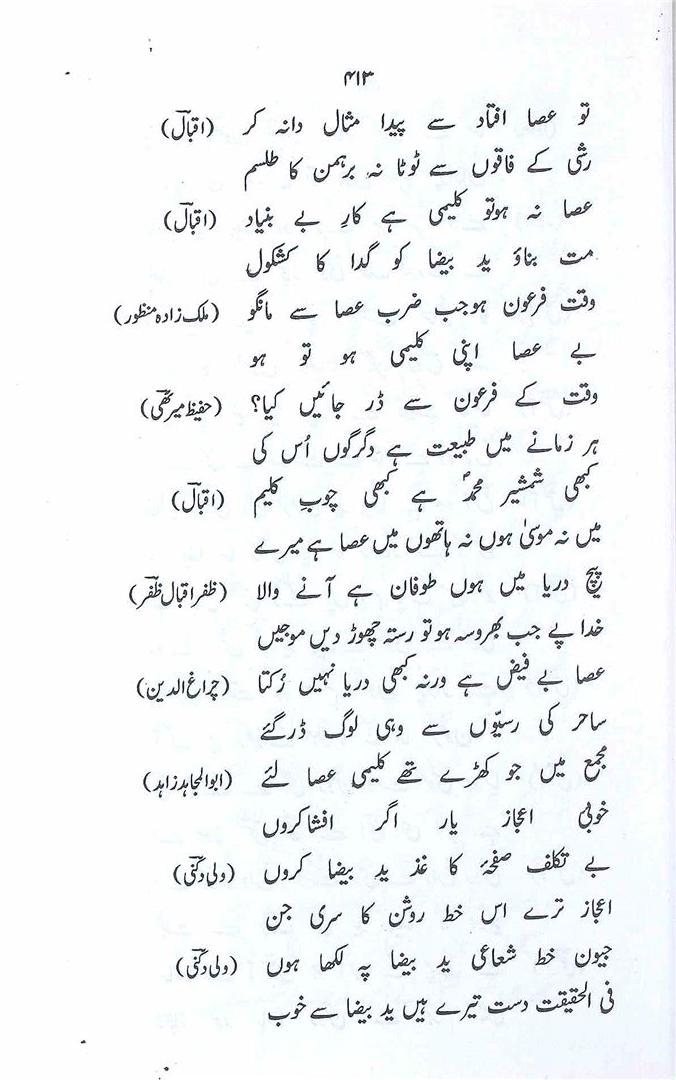 ۴۱۳
تو عصا افتاد سے پیدا مثال دانہ کر (اقبالؔ)
رشی کے فاقوں سے ٹوٹا نہ برہمن کا طلسم
عصا نہ ہوتو کلیمی ہے کارِ بے بنیاد (اقبالؔ)
مت بناؤ ید بیضا کو گدا کا کشکول
وقت فرعون ہوجب ضرب عصا سے مانگو (ملک زادہ منظور)
بے عصا اپنی کلیمی ہو تو ہو
وقت کے فرعون سے ڈر جائیں کیا؟ (حفیظ میرٹھیؔ)
ہر زمانے میں طبیعت ہے دگرگوں اُس کی
کبھی شمشیر محمدؐ ہے کبھی چوبِ کلیم (اقبالؔ)
میں نہ موسیٰ ہوں نہ ہاتھوں میں عصا ہے میرے
بیچ دریا میں ہوں طوفان ہے آنے والا (ظفر اقبال ظفرؔ)
خدا پے جب بھروسہ ہو تو رستہ چھوڑ دیں موجیں
عصا بے فیض ہے ورنہ کبھی دریا نہیں رُکتا (چراغ الدین)
ساحر کی رسیّوں سے وہی لوگ ڈر گئے
مجمع میں جو کھڑے تھے کلیمی عصا لئے (ابوالمجاہد زاہد)
خوبیٔ اعجاز یار اگر افشا کروں
بے تکلف صفحۂ کا غذ ید بیضا کروں (ولی دکنیؔ)
اعجاز ترے اس خط روشن کا سری جن
جیون خط شعاعی ید بیضا پہ لکھا ہوں (ولی دکنیؔ)
فی الحقیقت دست تیرے ہیں ید بیضا سے خوب